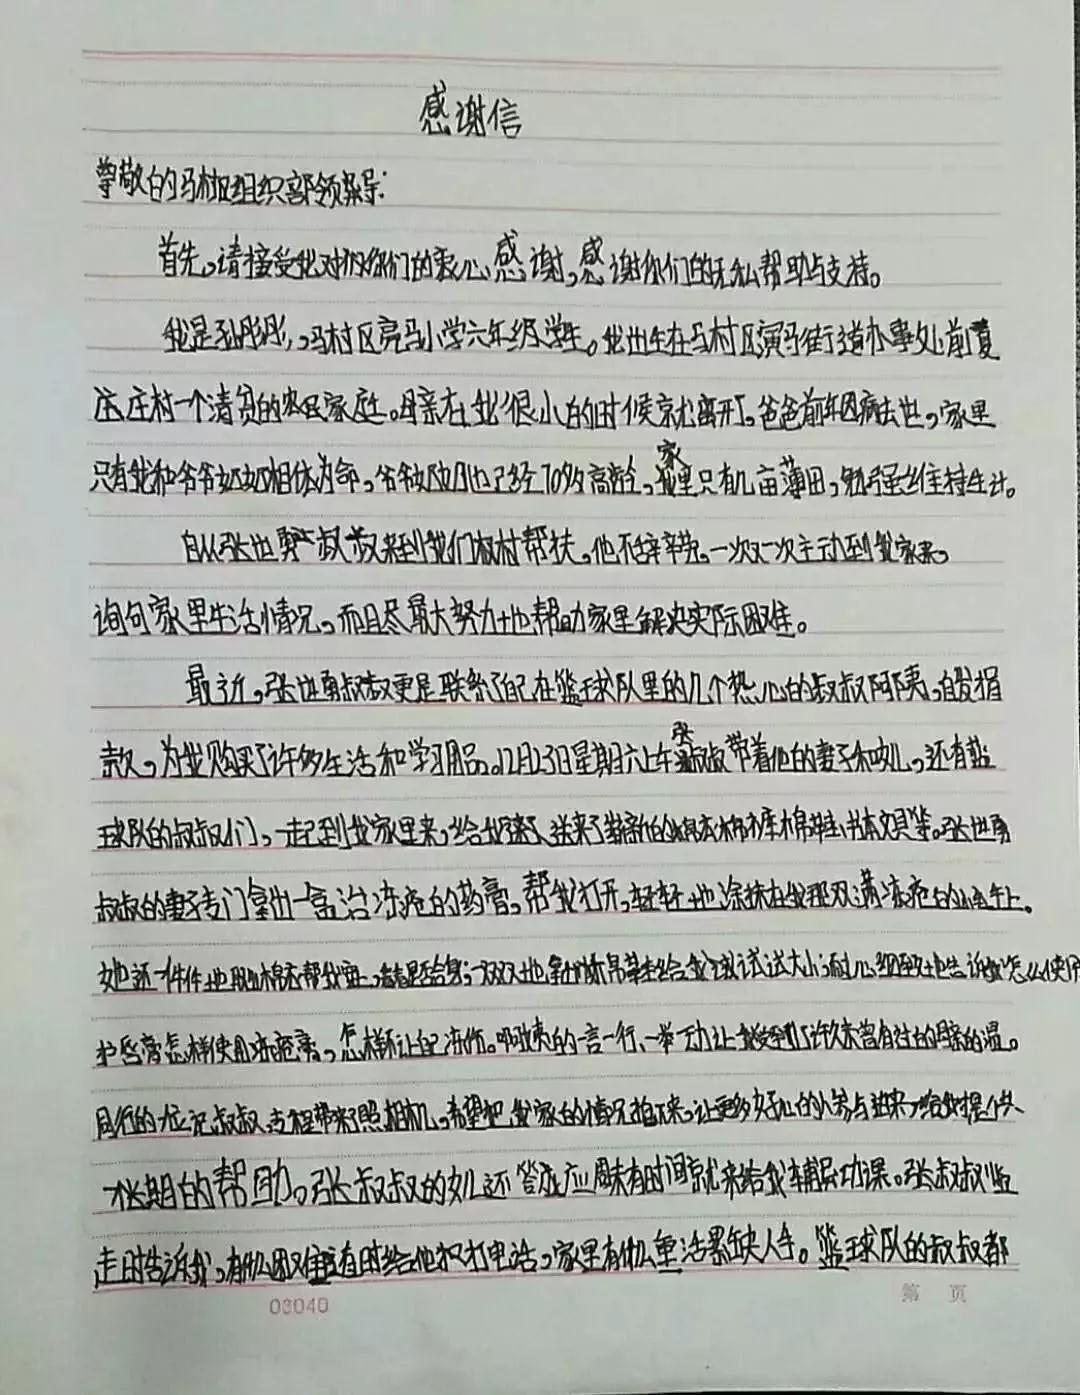 感谢信
尊敬的马村区组织部领导:
首先,请接受我对你们的衷心感谢,感谢你们的无私帮助与支持。
我是孙彤彤,马村区亮马小学六年级学生。我出生在马村区演马街道办事处前夏
庄村一个清贫的农民家庭。母亲在我很小的时候就离开了,爸爸前年因病去世,家里
只有我和爷爷奶奶相依为命,爷爷奶奶也已经70多高龄,家里只有几亩薄田,勉强维持生计。
自从张世勇叔叔来到我们村帮扶,他不辞辛苦,一次又一次主动到我家来,
询问家里生活情况,而且尽最大努力地帮助家里解决实际困难。
最近,张世勇叔叔更是联系了自己在篮球队里的几个热心的叔叔阿姨,自发捐
款,为我购买了许多生活和学习用品。12月23日星期六上午张叔叔带着他的妻子和女儿,还有篮
球队的叔叔们,一起到我家里来,给我送来了崭新的棉衣棉裤棉鞋书本文具等。张世勇
叔叔的妻子专门拿出一盒治冻疮的药膏,帮我打开,轻轻地涂抹在我那双满冻疮的小手上。
她还一件件地取出棉衣帮我穿上,一双双地拿出棉鞋给我试试大小,耐心细致地告诉我怎么使用
护唇膏怎样使用冻疮膏,阿姨的一言一行、一举一动让我感受到了许久未曾有过的母亲的温。
同行的一位叔叔带来了照相机,希望把我家的情况拍下来,让更多好心的人参与进来给我提供
长期的帮助。张叔叔的女儿还答应周末有时间就来给我辅导功课。张叔叔临
走时告诉我,有困难有时给他打电话,家里有什么重活累缺人手。篮球队的叔叔都
03040
第 页